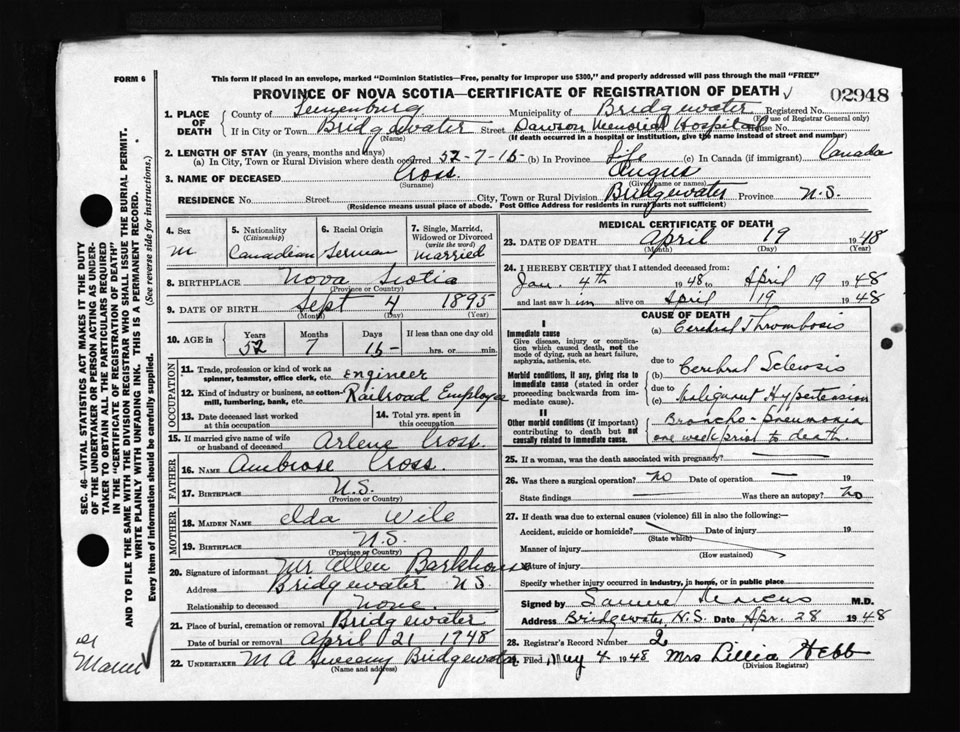 FORM 6
This form if placed in an envelope, marked "Dominion Statistics—Free, penalty for improper use $300," and properly addressed will pass through the mail "FREE"
PROVINCE OF NOVA SCOTIA—CERTIFICATE OF REGISTRATION OF DEATH
02948
1. PLACE OF DEATH
County of Lunenburg Municipality of Bridgewater Registered No.
(For use of Registrar General only)
If in City or Town Bridgewater Street Dawson Memorial Hospital House No.
(Name) (If death occurred in a hospital or institution, give the name instead of street and number)
2. LENGTH OF STAY (in years, months and days)
(a) In City, Town or Rural Division where death occurred 52-7-15- (b) In Province Life (c) In Canada (if immigrant) Canada
3. NAME OF DECEASED Cross. Angus
(Surname) (Given name or names)
RESIDENCE No. Street City, Town or Rural Division Bridgewater Province N.S.
(Residence means usual place of abode. Post Office Address for residents in rural parts not sufficient)
4. Sex
M
5. Nationality
(Citizenship)
Canadian
6. Racial Origin
German
7. Single, Married, Widowed or Divorced
(write the word)
Married
8. BIRTHPLACE Nova Scotia
(Province or Country)
9. DATE OF BIRTH Sept 4 1895
(Month) (Day) (Year)
10. AGE in
Years Months Days If less than one day old
52 7 15- hrs. or min.
OCCUPATION
11. Trade, profession or kind of work as spinner, teamster, office clerk, etc. Engineer
12. Kind of industry or business, as cotton-mill, lumbering, bank, etc. Railroad Employee
13. Date deceased last worked at this occupation
14. Total yrs. spent in this occupation
15. If married give name of wife or husband of deceased Arlene Cross.
FATHER
16. NAME Ambrose Cross.
17. BIRTHPLACE N.S.
(Province or Country)
MOTHER
18. MAIDEN NAME Ida Wile
19. BIRTHPLACE N.S.
(Province or Country)
20. Signature of informant Mr Allen Barkhouse
Address Bridgewater N.S.
Relationship to deceased None.
21. Place of burial, cremation or removal Bridgewater
Date of burial or removal April 21 1948
22. UNDERTAKER M A Sweeny Bridgewater
(Name and address)
MEDICAL CERTIFICATE OF DEATH
23. DATE OF DEATH April 19 1948
(Month) (Day)
24. I HEREBY CERTIFY that I attended deceased from:
Jan. 4th 1948 to April 19 1948
and last saw him alive on April 19 1948
CAUSE OF DEATH
I
Immediate cause
Give disease, injury or complication which caused death, not the mode of dying, such as heart failure, asphyxia, asthenia, etc.
(a) Cerebral Thrombosis
due to
Morbid conditions, if any, giving rise to immediate cause (stated in order proceeding backwards from immediate cause).
(b) Cerebral Sclerosis
due to
(c) Malignant Hypertension
II
Other morbid conditions (if important) contributing to death but not causally related to immediate cause.
Broncho-pneumonia
one week prior to death.
25. If a woman, was the death associated with pregnancy?
26. Was there a surgical operation? no Date of operation 19
State findings Was there an autopsy? no
27. If death was due to external causes (violence) fill in also the following:—
Accident, suicide or homicide? Date of injury 19
(State which)
Manner of injury
(How sustained)
Nature of injury
Specify whether injury occurred in industry, in home, or in public place
Signed by Samuel Marcus M.D.
Address Bridgewater, N.S. Date Apr. 28 1948
28. Registrar's Record Number 2
29. Filed May 4 1948 Mrs Lillia Hebb
(Division Registrar)
SEC. 46—VITAL STATISTICS ACT MAKES IT THE DUTY
OF THE UNDERTAKER OR PERSON ACTING AS UNDER-
TAKER TO OBTAIN ALL THE PARTICULARS REQUIRED
IN THE "CERTIFICATE OF REGISTRATION OF DEATH"
AND TO FILE THE SAME WITH THE DIVISION REGISTRAR WHO SHALL ISSUE THE BURIAL PERMIT.
WRITE PLAINLY WITH UNFADING INK. THIS IS A PERMANENT RECORD.
Every item of information should be carefully supplied. (See reverse side for instructions.)